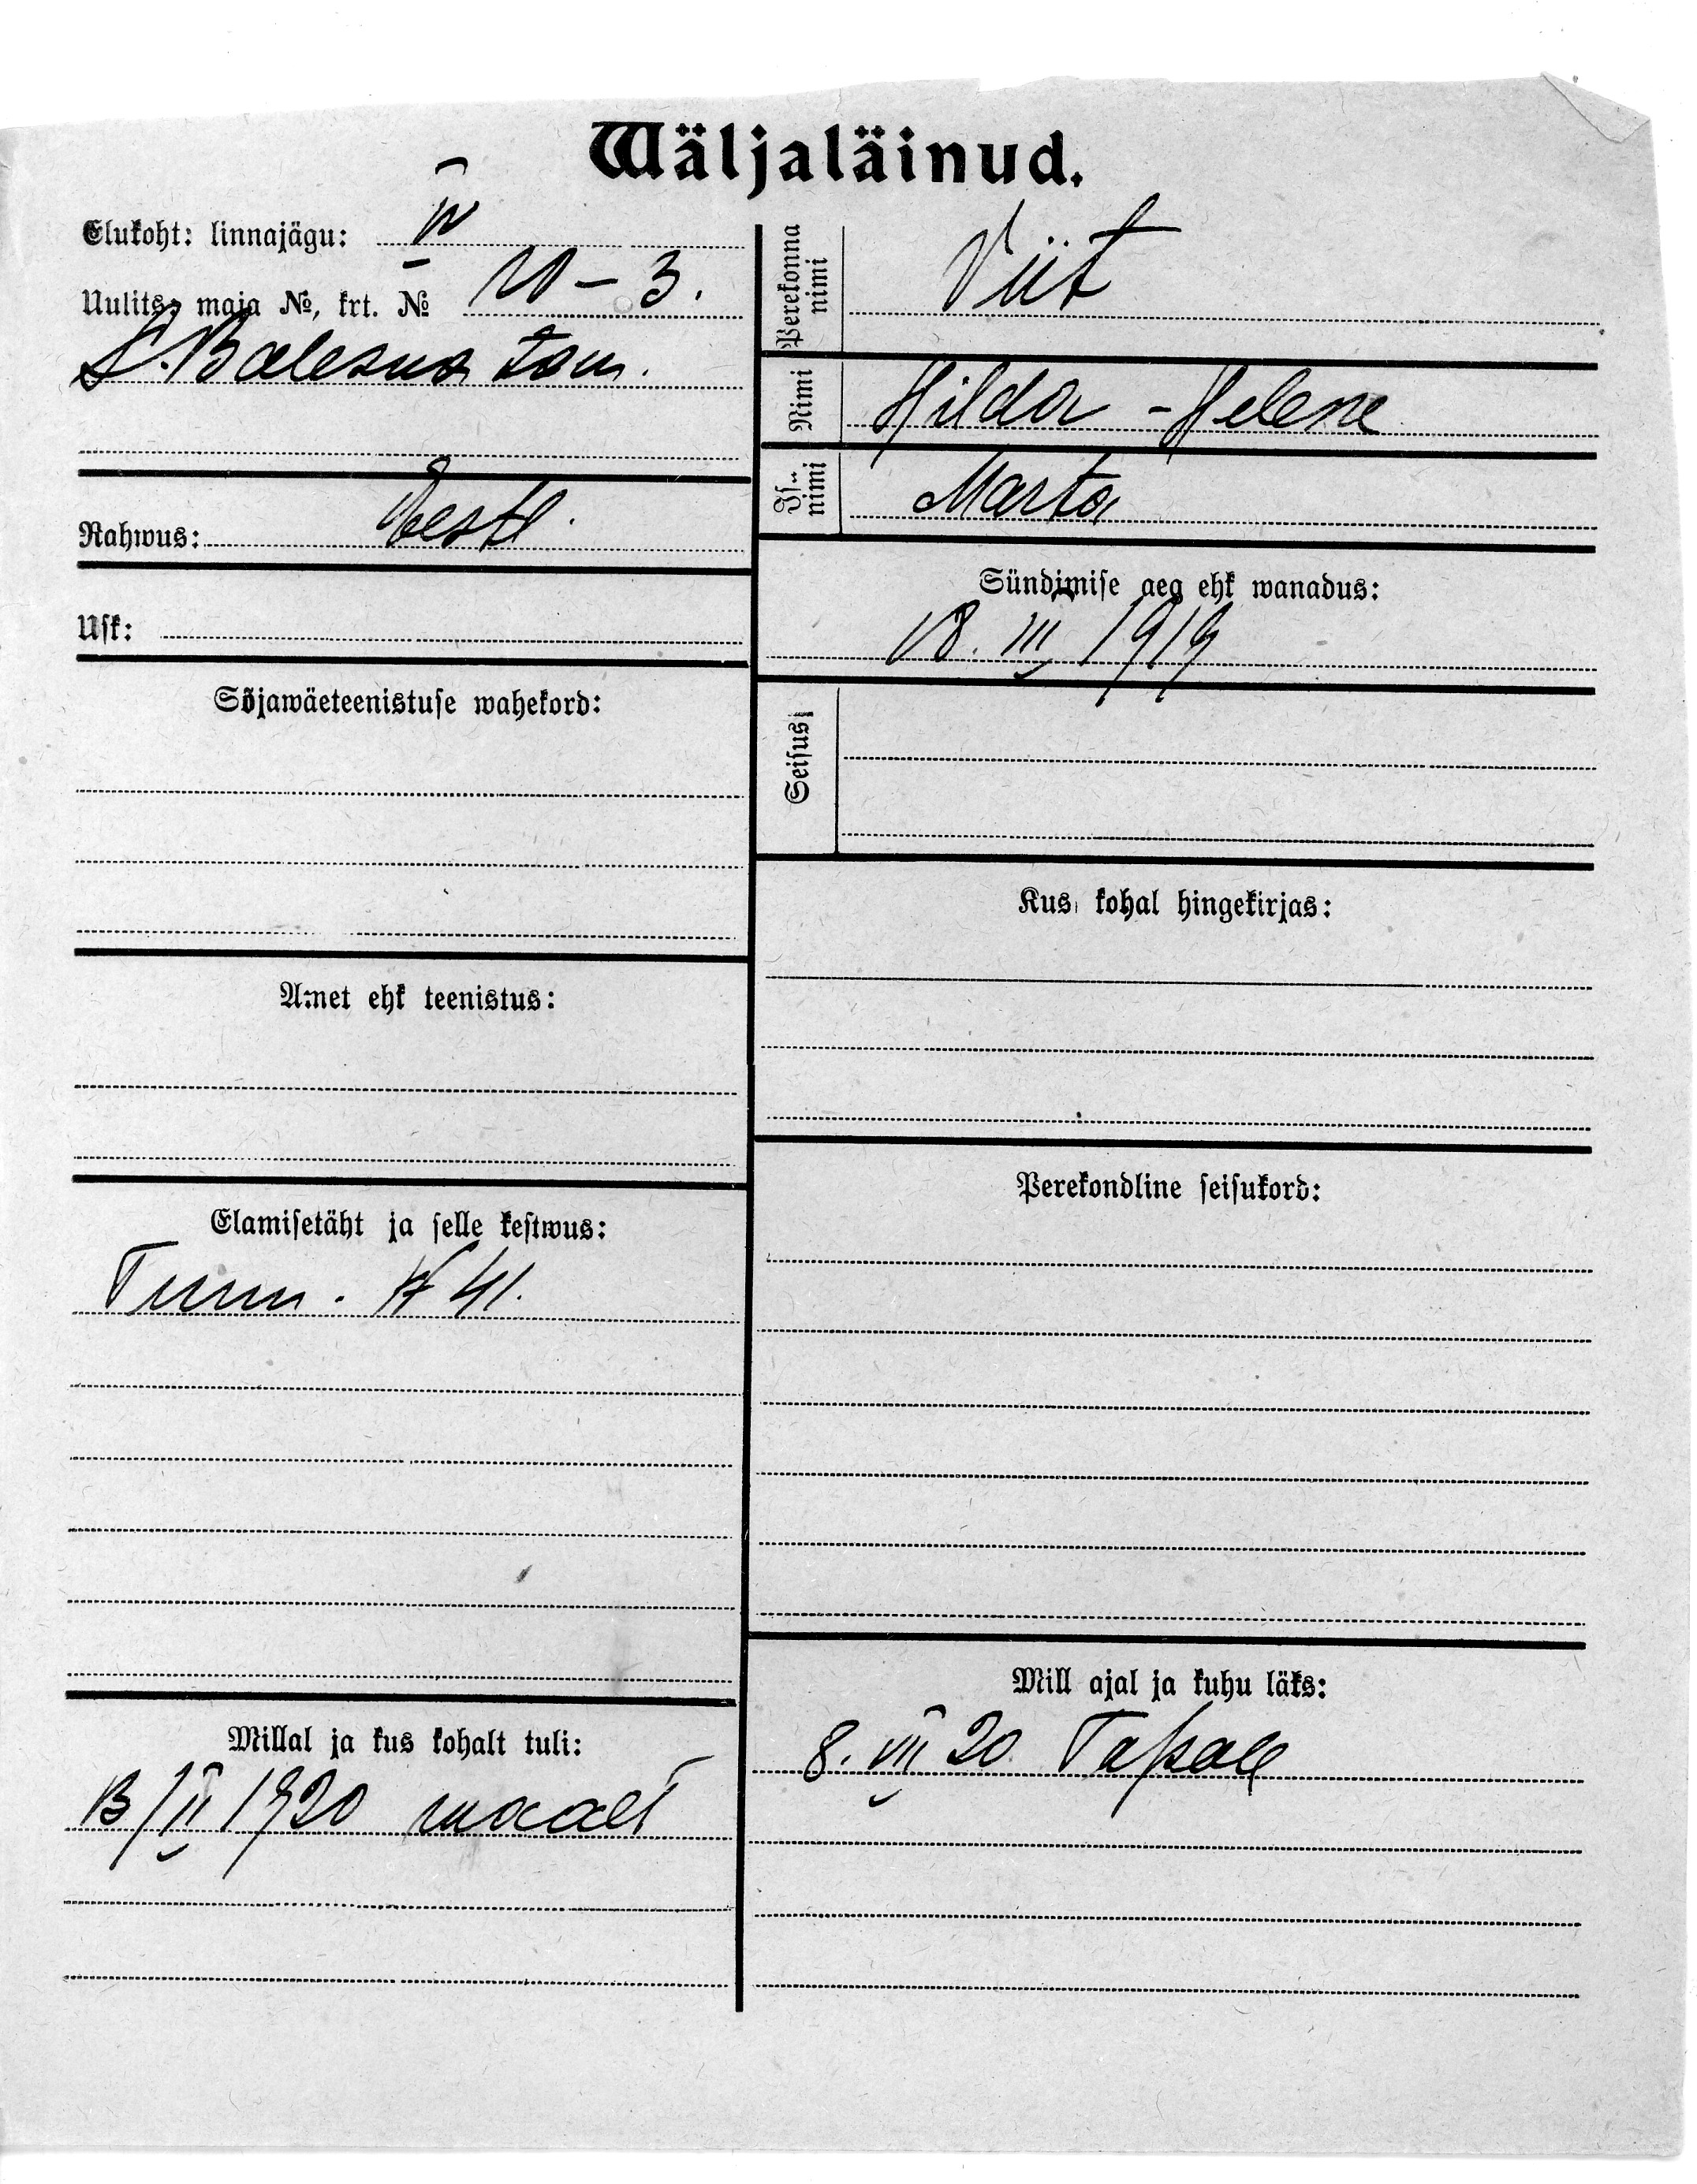 Wäljaläinud.
Elukoht: linnajägu: IV
Uulits, maja №, krt. № 10 – 3.
Rahwus: Eestl.
Usk:
Sõjawäeteenistuse wahekord:
Amet ehk teenistus:
Elamisetäht ja selle kestwus:
Tunn. № 41.
Millal ja kus kohalt tuli:
13/II 1920 maalt
Perekonna nimi Viit
Nimi Hilda - Helene
Is.. nimi Marta
Sündimise aeg ehk wanadus:
18. III 1919
Seisus
Kus kohal hingekirjas:
Perekondline seisukord:
Mill ajal ja kuhu läks:
8. VII 20 Tapale